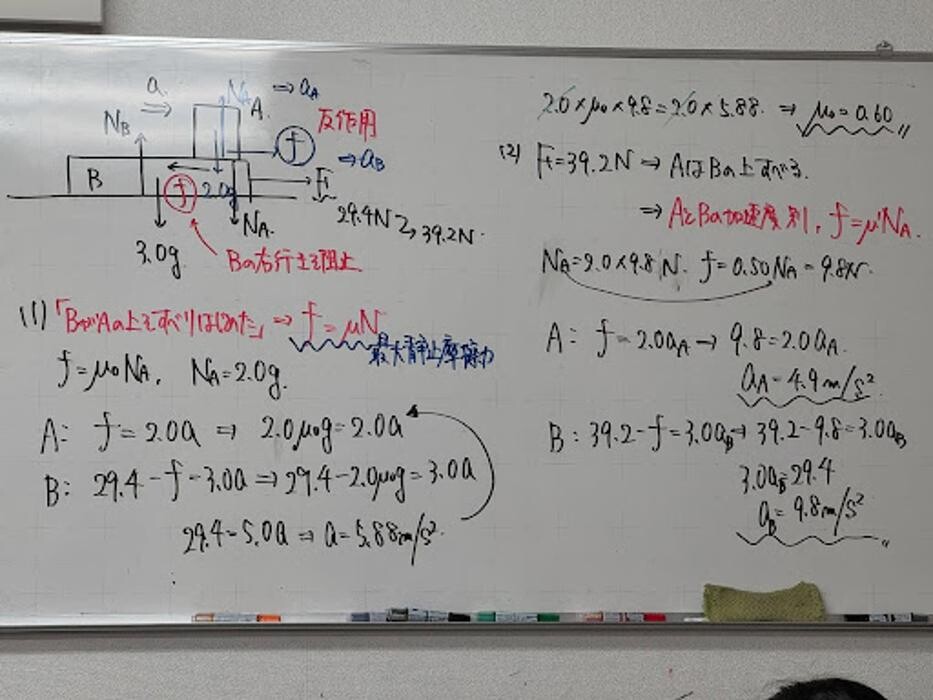 a
NA
A
⇒ aA
NB
f
反作用
⇒ aB
B
f
2.0g
F
29.4N
↳ 39.2N.
NA.
3.0g
Bの右行きを阻止.
(1)「BがAの上をすべりはじめた」⇒ f=μN
最大静止摩擦力
f=μ₀NA, NA=2.0g.
A: f=2.0a ⇒ 2.0μ₀g=2.0a
B: 29.4-f=3.0a ⇒ 29.4-2.0μ₀g=3.0a
29.4=5.0a ⇒ a=5.88m/s²
2.0×μ₀×9.8=2.0×5.88. ⇒ μ₀=0.60 〃
(2) F=39.2N → AはBの上すべる.
⇒ AとBの加速度別, f=μ'NA.
NA=2.0×9.8N. f=0.50NA=9.8N.
A: f=2.0aA → 9.8=2.0aA.
aA=4.9m/s²
B: 39.2-f=3.0aB → 39.2-9.8=3.0aB
3.0aB=29.4
aB=9.8m/s² 〃